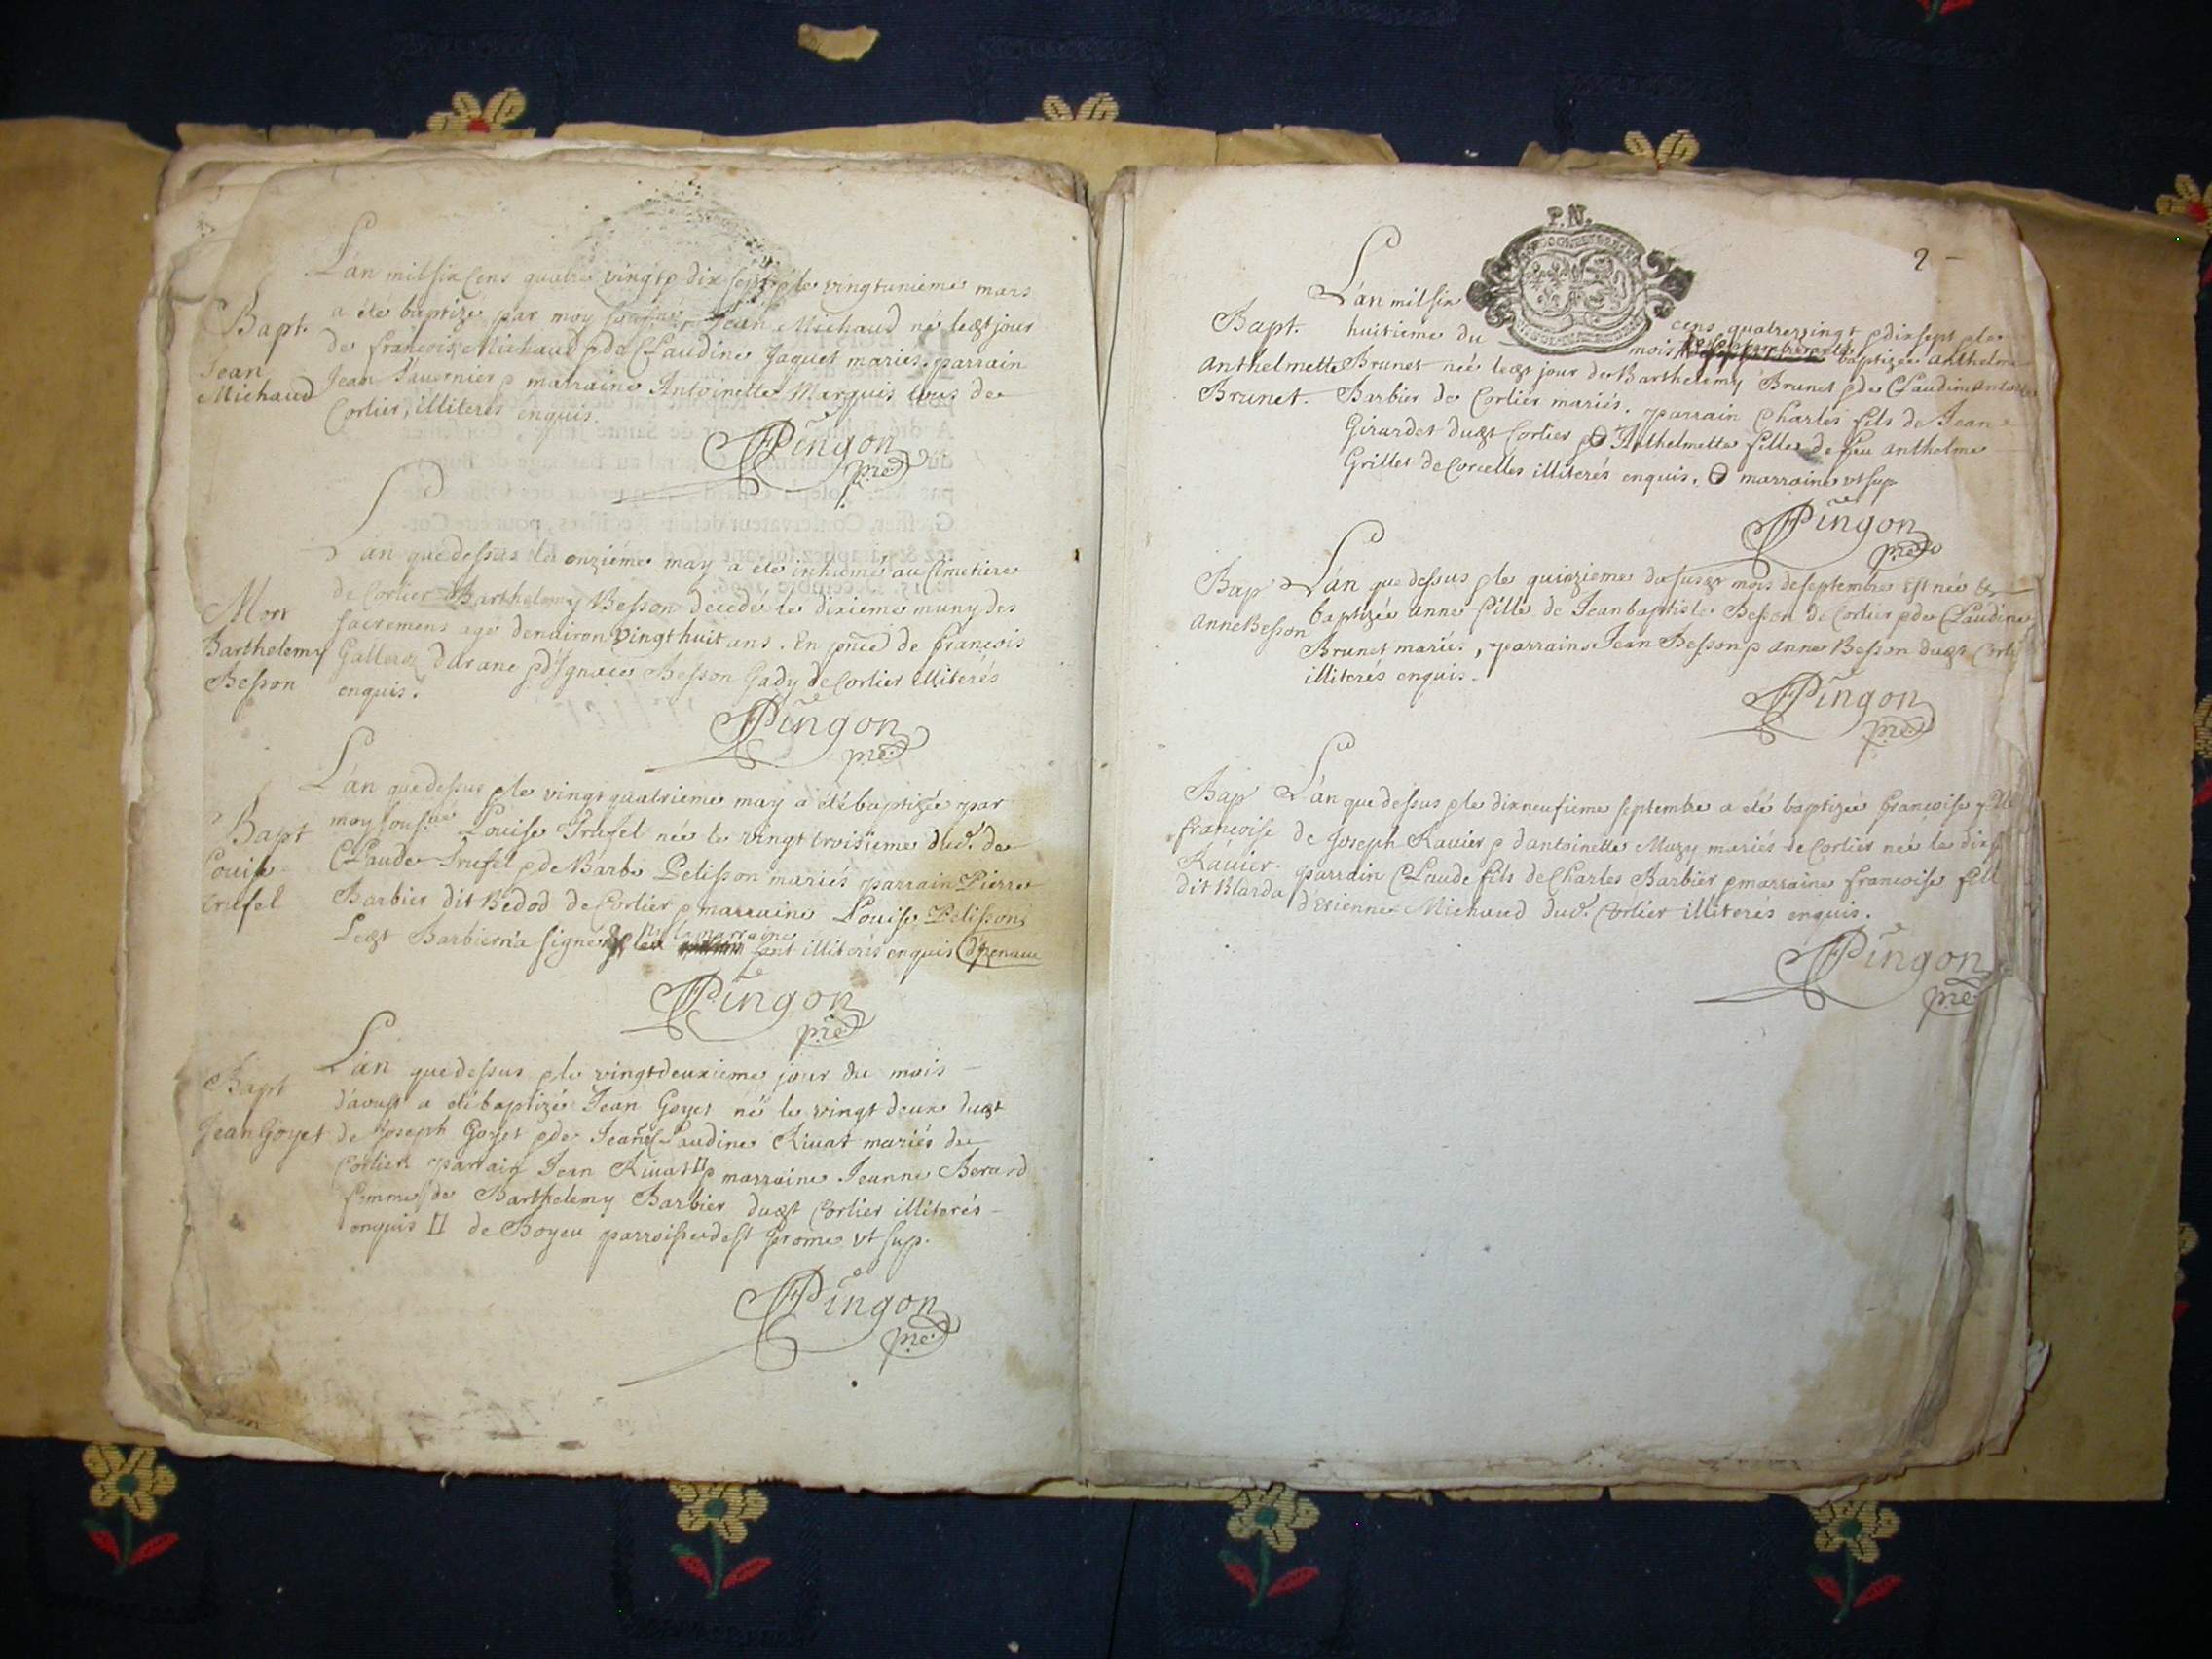 L'an mil six cens quatre vingt & dix sept & le vingtunieme mars
Bapt. a été baptizé par moy Jean Michaud né ledt jour
de françois Michaud & de Claudine Jaquet mariés. parrain
Jean Jean Tavernier & marraine Antoinette Marquis tous de
Michaud Corlier, illiterés enquis.
Pingon
pre
L'an que dessus le onziéme may a été inhumé au Cimetiere
de Corlier Barthelemy Besson decedé le dixieme muny des
Mort sacremens agé denviron vingt huit ans. En pnce de françois
Barthelemy darane & d'Ignace Besson Gady de Corlier illiterés
Besson enquis.
Pingon
pre
L'an que dessus & le vingt quatrieme may a été baptizée par
Bapt moy sousné Louise Trufel née le vingt troisieme dud. de
Louise Claude Trufel & de Barbe Pelisson mariés parrain Pierre
trufel Barbier dit Bedod de Corlier & marraine Louise Pelisson
la marraine
Ledt Barbier n'a signé illiterés enquis
Pingon
pre
Bapt L'an que dessus & le vingtdeuxieme jour du mois
d'aoust a été baptizé Jean Goyet né le vingt deux dudt
Jean Goyet de Joseph Goyet & de Claudine Rivat mariés de
Corlier parrain Jean Rivat & marraine Jeanne Berard
femme de Barthelemy Barbier dudt Corlier illiterés
enquis de Boyeu parroisse de st Jerome vt sup.
Pingon
pre
P.N.
2
L'an mil six cens quatre vingt & dix sept & le
Bapt. huitieme du mois baptizée anthelme
Anthelmette Brunet née ledt jour de Barthelemy Brunet & de Claudine
Brunet. Barbier de Corlier mariés. parrain Charles fils de Jean
Girardet dudt Corlier & Anthelmette fille de feu anthelme
Grillet de Corcelles illiterés enquis. marraine vt sup
Pingon
pre
Bap L'an que dessus & le quinzieme du susdt mois de septembre est née &
Anne Besson baptizée anne fille de Jean baptiste Besson de Corlier & de Claudine
Brunet mariés, parrain Jean Besson & anne Besson dudt
illiterés enquis.
Pingon
pre
Bap L'an que dessus & le dixneufieme septembre a été baptizée françoise fille
françoise de Joseph Ravier & d'antoinette Muzy mariés de Corlier née le
Ravier parrain Claude fils de Charles Barbier & marraine françoise
dit Blarda d'Etienne Michaud dud. Corlier illiterés enquis.
Pingon
pre